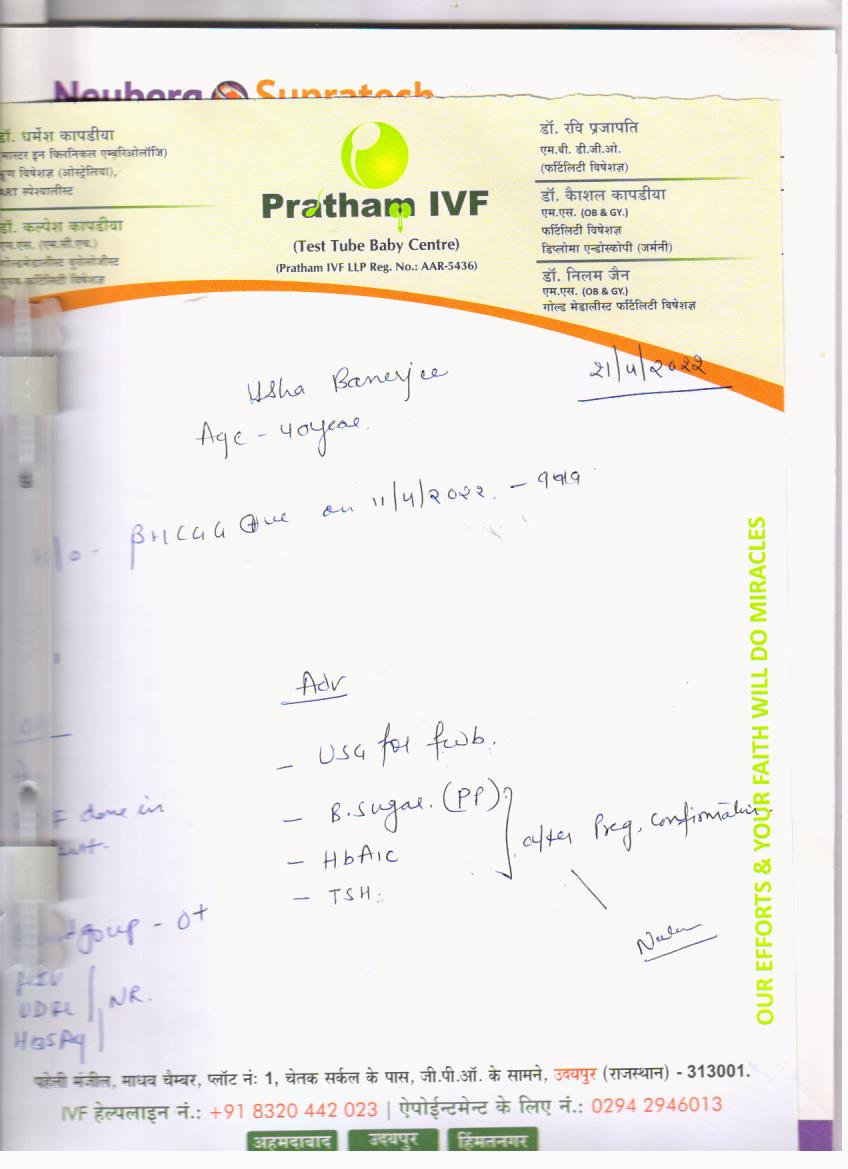 Neuberg Supratech
डॉ. धर्मेश कापडीया
मास्टर इन क्लिनिकल एम्बरिओलॉजि)
विषेशज्ञ (ऑस्ट्रेलिया),
ART स्पेश्यालीस्ट
डॉ. कल्पेश कापडीया
एम.एस. (एम.सी.एच.)
गोल्डमेडालीस्ट युरोलोजीस्ट
फर्टिलिटी विषेशज्ञ
Pratham IVF
(Test Tube Baby Centre)
(Pratham IVF LLP Reg. No.: AAR-5436)
डॉ. रवि प्रजापति
एम.बी. डी.जी.ओ.
(फर्टिलिटी विषेशज्ञ)
डॉ. कैाशल कापडीया
एम.एस. (OB & GY.)
फर्टिलिटी विषेशज्ञ
डिप्लोमा एन्डोस्कोपी (जर्मनी)
डॉ. निलम जैन
एम.एस. (OB & GY.)
गोल्ड मेडालीस्ट फर्टिलिटी विषेशज्ञ
Usha Banerjee
૨૧/૫/૨૦૨૨
Age - ૫૦ year.
H/o - βHCG +ve on ૧૧/૫/૨૦૨૨. -
Adv
- USG for fwb.
- B. Sugar. (PP)
- HbA1C
- TSH.
after Preg. confirmation.
done in
group - O+
HIV
VDRL
HBSAg
NR.
OUR EFFORTS & YOUR FAITH WILL DO MIRACLES
पहेली मंजील, माधव चैम्बर, प्लॉट नं: 1, चेतक सर्कल के पास, जी.पी.ऑ. के सामने, उदयपुर (राजस्थान) - 313001.
IVF हेल्पलाइन नं.: +91 8320 442 023 | ऐपोईन्टमेन्ट के लिए नं.: 0294 2946013
अहमदाबाद उदयपुर हिंमतनगर